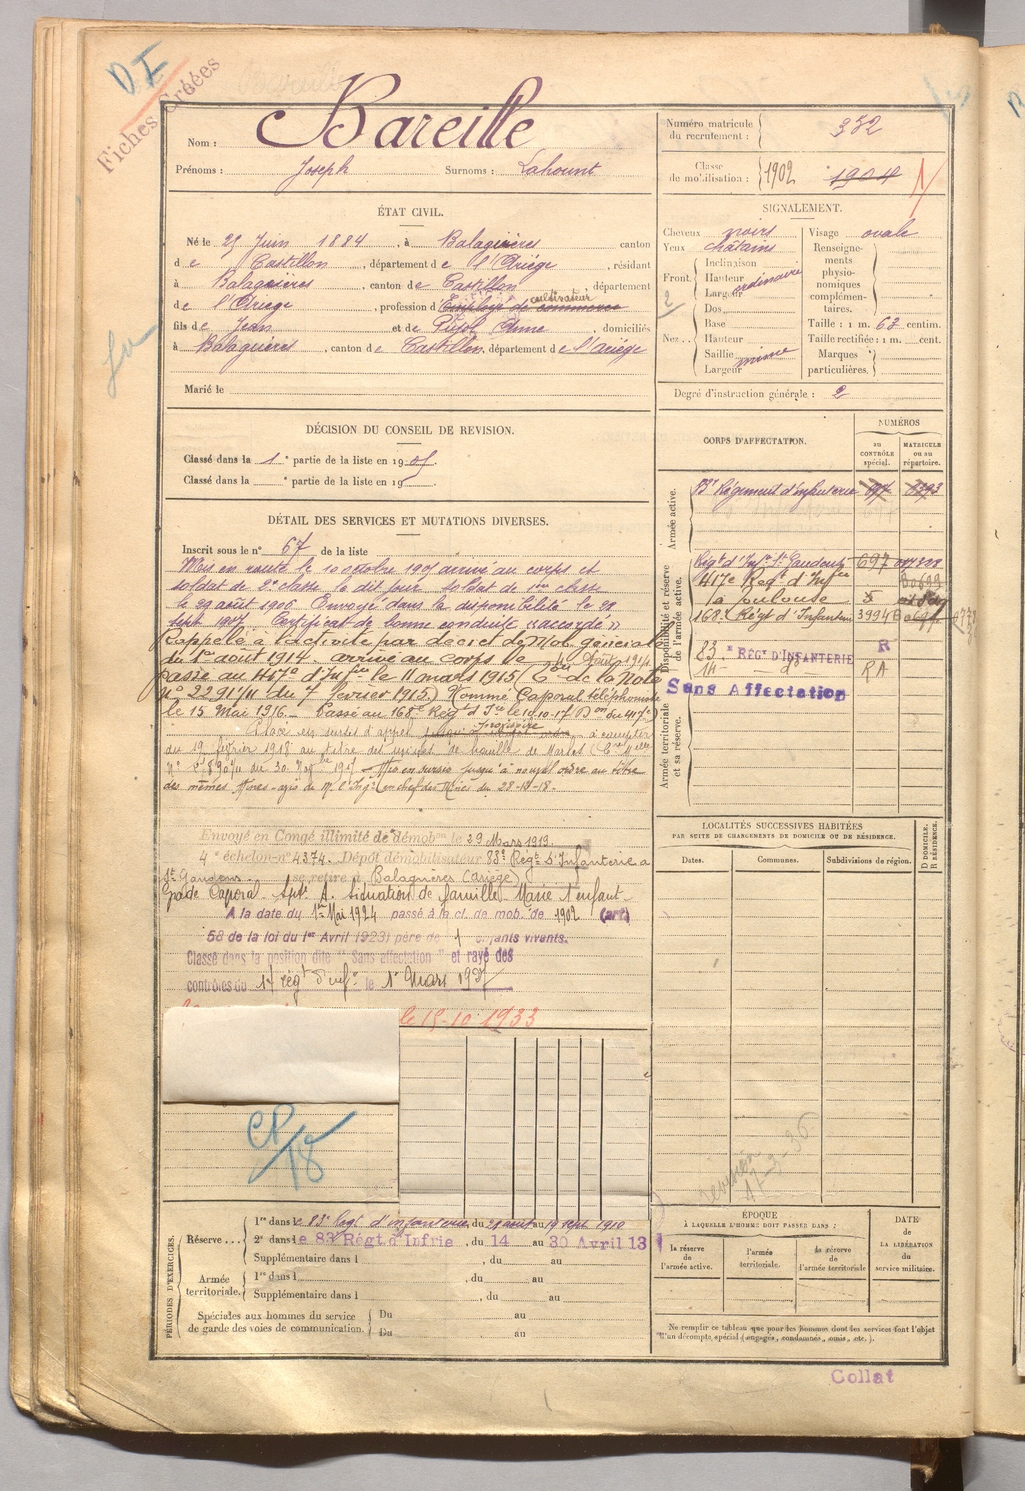 D I
Fiches Créées
Nom : Bareille
Prénoms : Joseph Surnoms : Lahount
Numéro matricule du recrutement : 352
Classe de mobilisation : 1902 1904
ÉTAT CIVIL.
Né le 25 Juin 1884, à Balaguères canton
de Castillon, département de l'Ariège, résidant
à Balaguères, canton de Castillon, département
de l'Ariège, profession d'Employé de commerce cultivateur
fils de Jean et de Pujol Anne, domiciliés
à Balaguères, canton de Castillon, département de l'Ariège
Marié le
SIGNALEMENT.
Cheveux noirs
Yeux châtains
Front. Inclinaison
Hauteur ordinaire
Largeur
Nez. Dos
Base
Hauteur
Saillie
Largeur
Visage ovale
Renseignements physionomiques complémentaires.
Taille : 1 m. 62 centim.
Taille rectifiée : 1 m. cent.
Marques particulières.
Degré d'instruction générale : 2
DÉCISION DU CONSEIL DE REVISION.
Classé dans la 1e partie de la liste en 1905.
Classé dans la e partie de la liste en 19
DÉTAIL DES SERVICES ET MUTATIONS DIVERSES.
Inscrit sous le n° 67 de la liste
Mis en route le 10 octobre 1905 arrivé au corps et
soldat de 2e classe le dit jour soldat de 1ère classe
le 29 août 1906. Envoyé dans la disponibilité le 28
sept 1907. Certificat de bonne conduite "accordé"
Rappelé à l'activité par décret de Mob générale
du 1er août 1914. arrivé au corps le 4 Août 1914.
Passé au 417e d'Infrie le 11 mars 1915 (Con de la Note
N° 22911/11 du 7 février 1915) Nommé Caporal téléphoniste
le 15 Mai 1916. Passé au 168e Régt d'Ie le 10.10.17 (Don du 417e)
Placé en sursis d'appel à compter
du 19 février 1918 au titre des mines de houille de
du 30 1917 Mis en sursis jusqu'à nouvel ordre au titre
des mêmes Mines - avis de Mr l'Ingr en chef des Mines du 28-12-18.
Envoyé en Congé illimité de démobon le 29 Mars 1919.
4e échelon n° 4374. Dépôt démobilisateur 83e Régt d'Infanterie à
St Gaudens. se retire à Balaguères (Ariège)
A. Situation de famille Marié 1 enfant
A la date du 1er Mai 1924 passé à la cl. de mob. de 1902 (art
58 de la loi du 1er Avril 1923) père de 1 enfants vivants.
Classé dans la position dite "Sans affectation" et rayé des
contrôles du 17 régt d'infie le 1er Mars 1927
le 15-10-1933
CP/18
CORPS D'AFFECTATION.
NUMÉROS
au CONTRÔLE spécial.
MATRICULE ou au répertoire.
Armée active.
83e Régiment d'infanterie
Disponibilité et réserve de l'armée active.
Régt d'Infie St Gaudens 697
417e Régt d'Infie
à Toulouse
168e Régt d'Infanterie 3994
83e RÉGt D'INFANTERIE R
RA
Sans Affectation
Armée territoriale et sa réserve.
LOCALITÉS SUCCESSIVES HABITÉES
PAR SUITE DE CHANGEMENTS DE DOMICILE OU DE RÉSIDENCE.
Dates.
Communes.
Subdivisions de région.
D DOMICILE.
R RÉSIDENCE.
PÉRIODES D'EXERCICES.
Réserve... 1re dans le 83e Regt d'infanterie, du 28 août au 19 sept 1910
2e dans le 83 Régt d'Infrie, du 14 au 30 Avril 13
Supplémentaire dans l , du au
Armée territoriale. 1re dans l , du au
Supplémentaire dans l , du au
Spéciales aux hommes du service de garde des voies de communication. Du au
Du au
ÉPOQUE
À LAQUELLE L'HOMME DOIT PASSER DANS :
la réserve de l'armée active.
l'armée territoriale.
la réserve de l'armée territoriale
DATE DE LA LIBÉRATION du service militaire.
Ne remplir ce tableau que pour les hommes dont les services font l'objet
d'un décompte spécial (engagés, condamnés, omis, etc.).
Collat